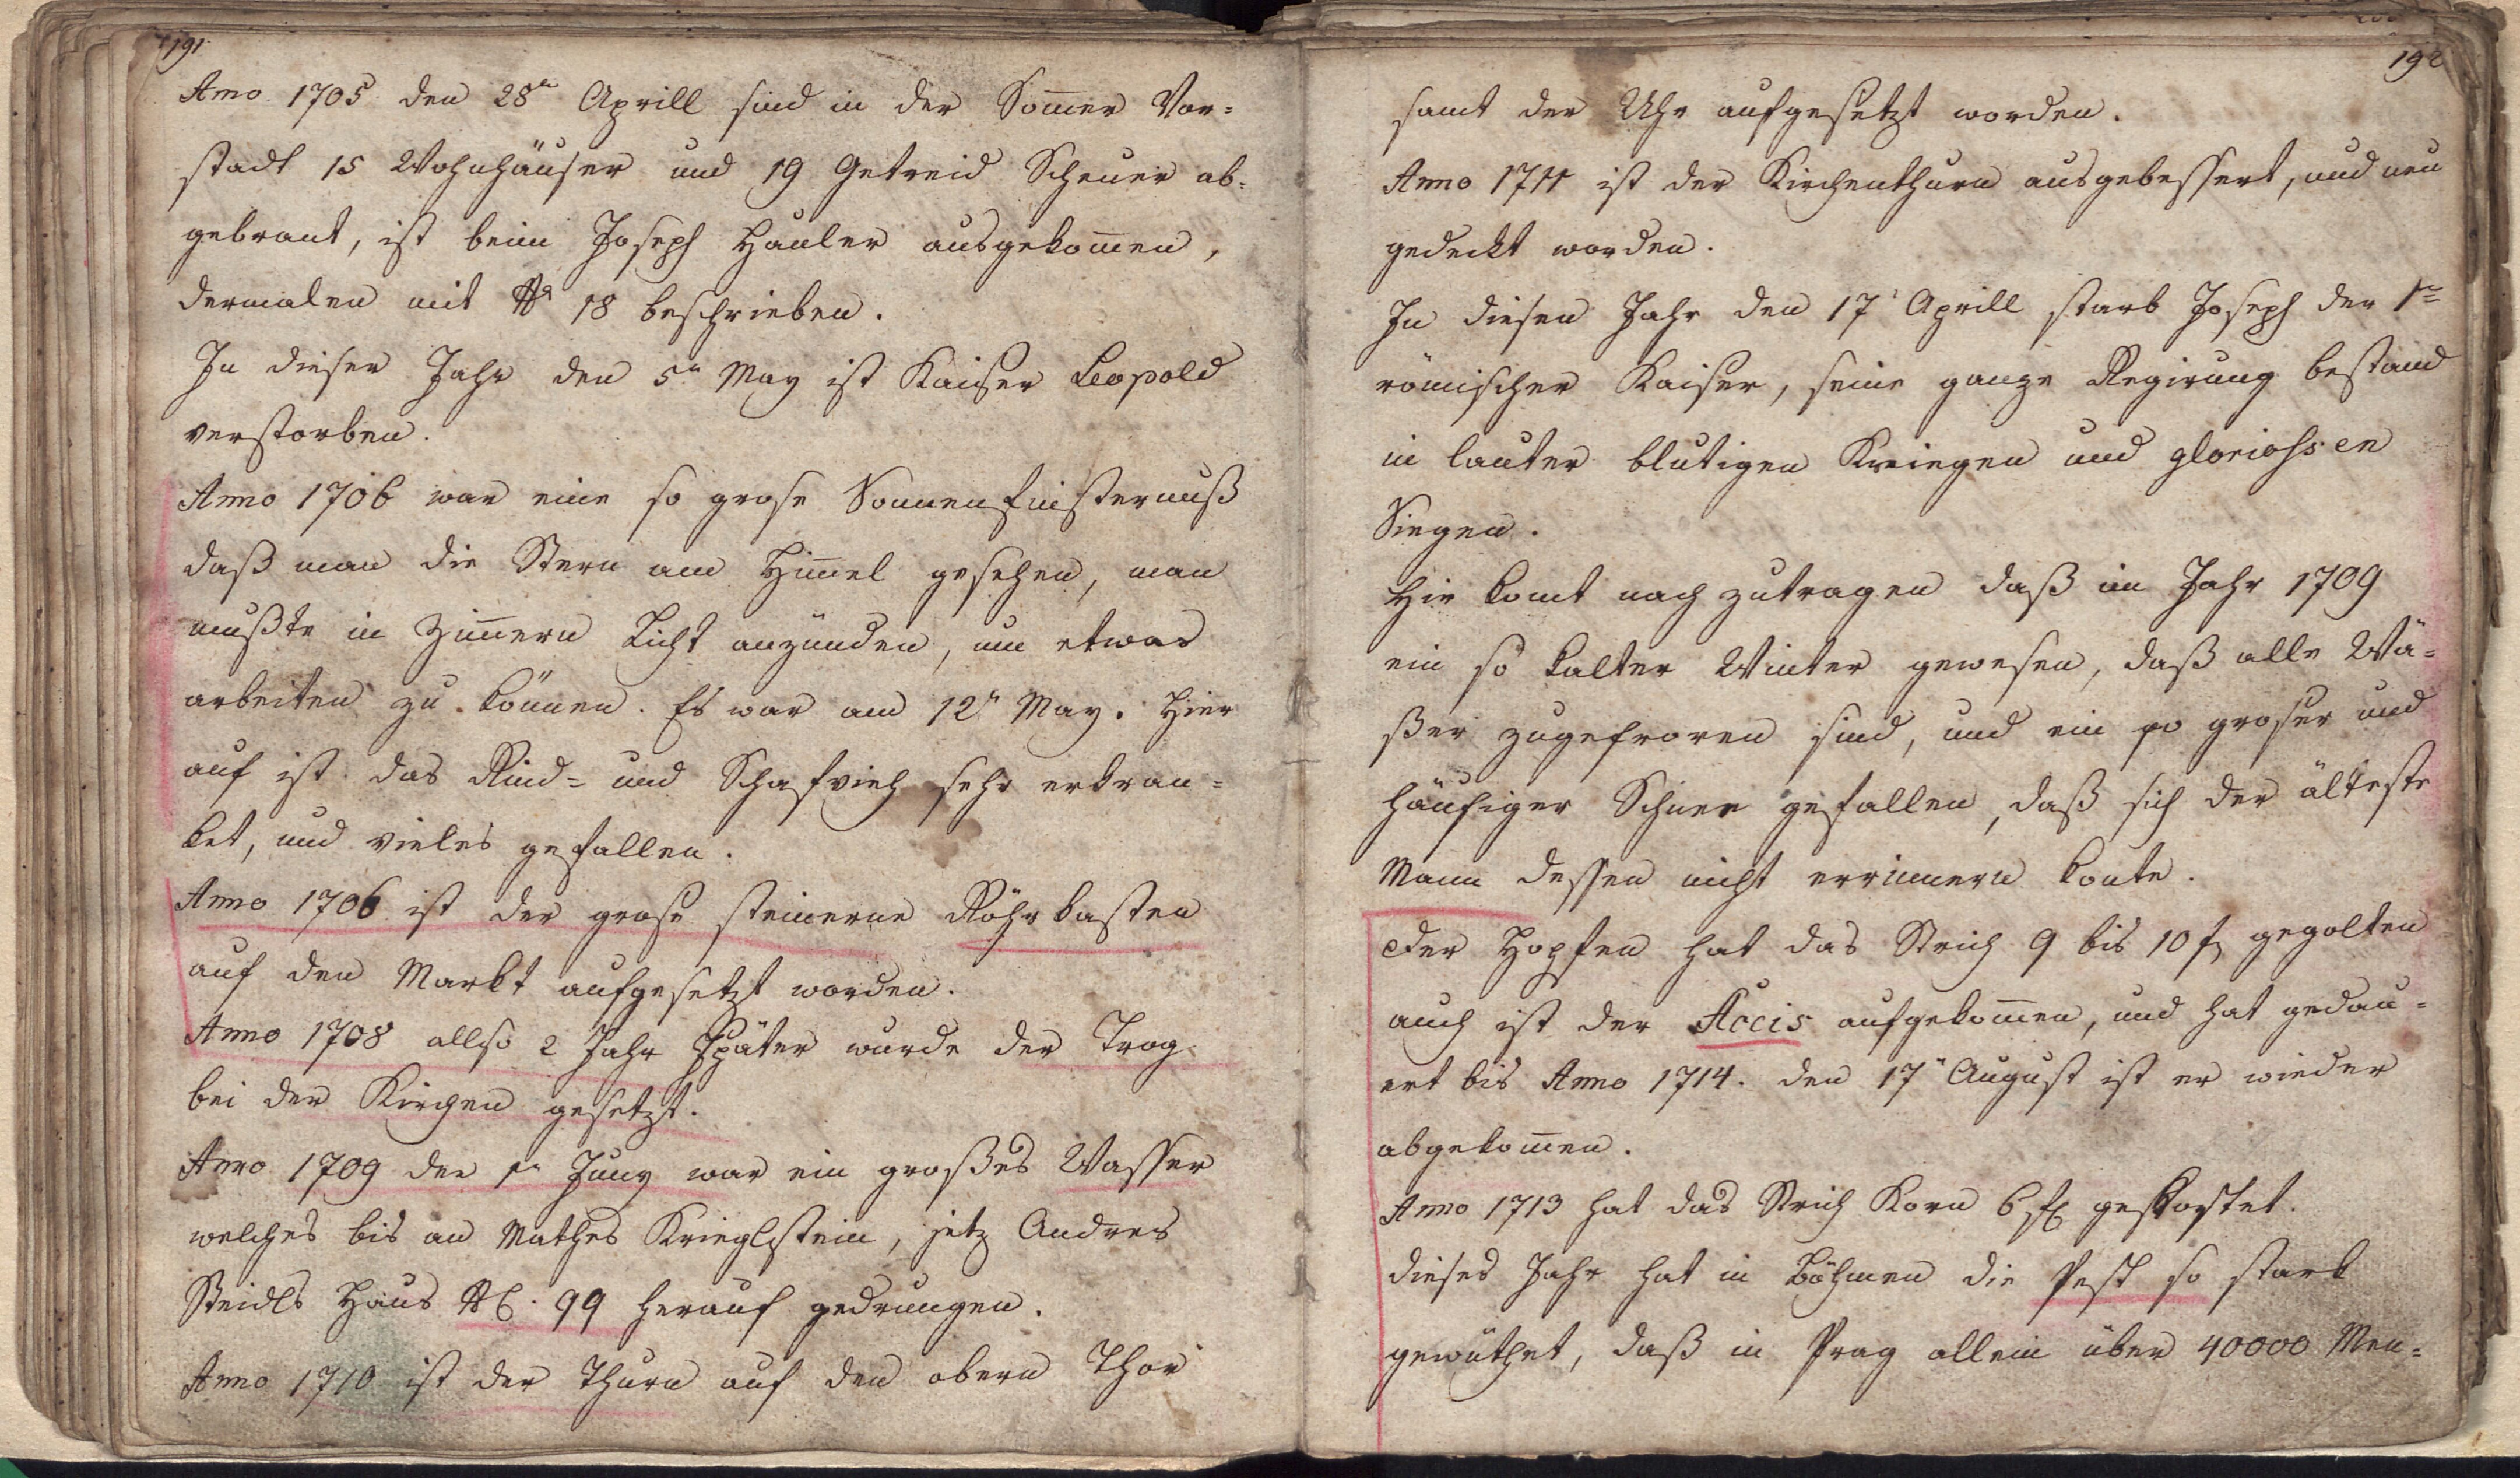 191
Anno 1705 den 28n Aprill sind in der Som̅er Vor=
stadt 15 Wohnhäuser und 19 Getreid Scheuer ab=
gebrant, ist beim Joseph Hauler ausgekom̅en,
dermalen mit No 18 beschrieben.
In dieser Jahr den 5n May ist Kaiser Leopold
verstorben.
Anno 1706 war eine so grose Sonnenfinsternuß
daß man die Stern am Him̅el gesehen, man
mußte in Zim̅ern Licht anzünden, um etwas
arbeiten zu können. Es war am 12n May. Hier
auf ist das Rind= und Schafvieh sehr erkran=
ket, und vieles gefallen.
Anno 1706 ist der grose steinerne Röhrkasten
auf den Markt aufgesetzt worden.
Anno 1708 allso 2 Jahr später wurde der Trog
bei der Kirchen gesetzt.
Anno 1709 den 1n Juny war ein großes Wasser
welches bis an Mathes Krieglstein, jetz Andres
Steidls Haus NC. 99 herauf gedrungen.
Anno 1710 ist der Thurn auf den obern Thor
192
samt der Uhr aufgesetzt worden.
Anno 1711 ist der Kirchenthurn ausgebessert, und neu
gedeckt worden.
In diesen Jahr den 17 Aprill starb Joseph der 1te
römischer Kaiser, seine ganze Regirung bestand
in lauter blutigen Kriegen und gloriossen
Siegen.
Hie komt nach zutragen daß im Jahr 1709
ein so kalter Winter gewesen, daß alle Wä=
ßer zugefroren sind, und ein so groser und
häufiger Schnee gefallen, daß sich der älteste
Mann dessen nicht errinnern konte.
Der Hopfen hat das Strich 9 bis 10 f gegolten
auch ist der Accis aufgekom̅en, und hat gedau=
ert bis Anno 1714. den 17n August ist er wieder
abgekom̅en.
Anno 1713 hat das Strich Korn 6 f gekostet.
dieses Jahr hat in Böhmen die Pest so stark
gewüthet, daß in Prag allein über 40000 Men=